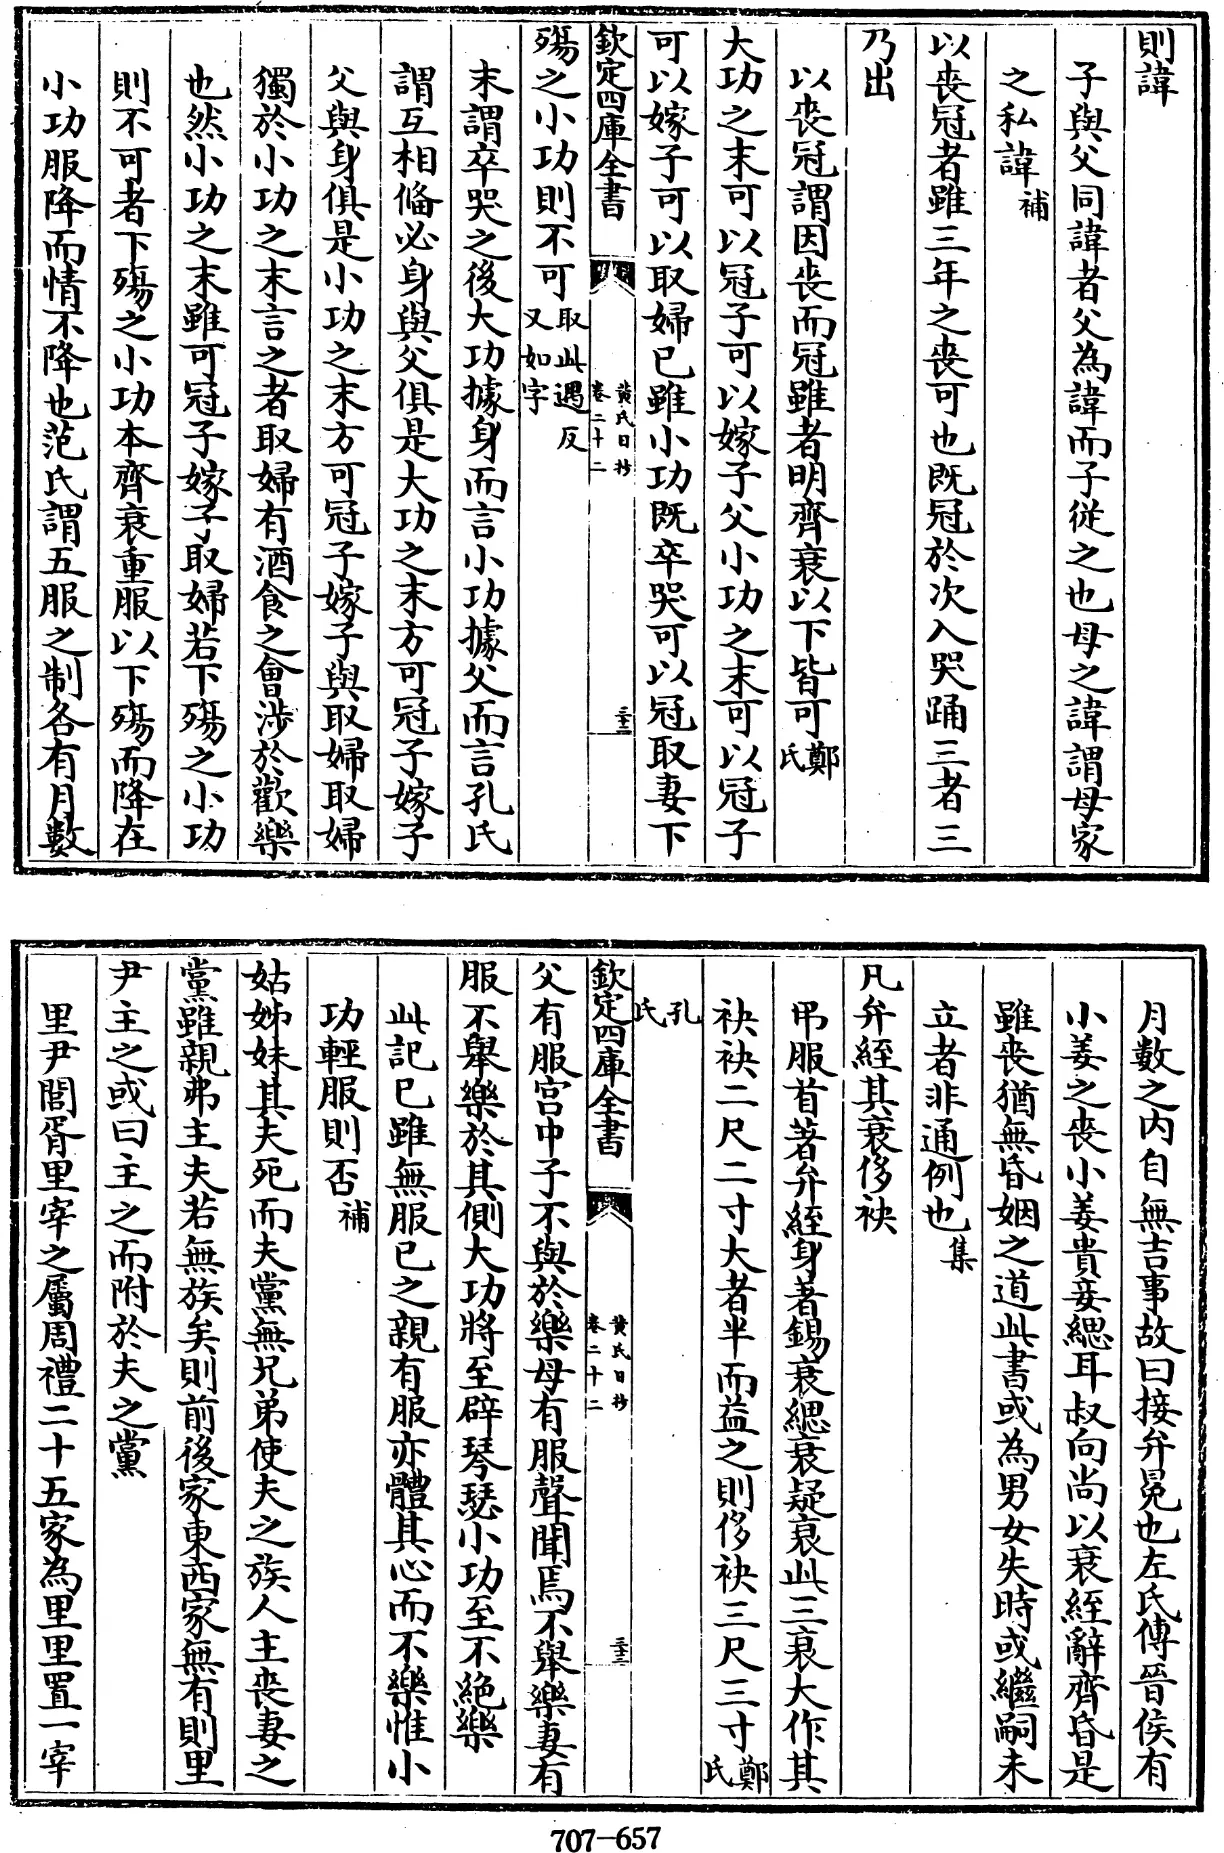 則諱
子與父同諱者父為諱而子從之也母之諱謂母家
之私諱補
以喪冠者雖三年之喪可也既冠於次入哭踊三者三
乃出
以喪冠謂因喪而冠雖者明齊衰以下皆可鄭氏
大功之末可以冠子可以嫁子父小功之末可以冠子
可以嫁子可以取婦已雖小功既卒哭可以冠取妻下
欽定四庫全書
黄氏日抄
卷二十二
三十二
殤之小功則不可取此遇反又如字
末謂卒哭之後大功據身而言小功據父而言孔氏
謂互相備必身與父俱是大功之末方可冠子嫁子
父與身俱是小功之末方可冠子嫁子與取婦取婦
獨於小功之末言之者取婦有酒食之會涉於歡樂
也然小功之末雖可冠子嫁子取婦若下殤之小功
則不可者下殤之小功本齊衰重服以下殤而降在
小功服降而情不降也范氏謂五服之制各有月數
月數之内自無吉事故曰接弁冕也左氏傳晉侯有
小姜之喪小姜貴妾緦耳叔向尚以衰絰辭齊昏是
雖喪猶無昏姻之道此書或為男女失時或繼嗣未
立者非通例也集
凡弁絰其衰侈袂
弔服首著弁絰身著錫衰緦衰疑衰此三衰大作其
袂袂二尺二寸大者半而益之則侈袂三尺三寸鄭氏
孔氏
欽定四庫全書
黄氏日抄
卷二十二
三十三
父有服宫中子不與於樂母有服聲聞焉不舉樂妻有
服不舉樂於其側大功將至辟琴瑟小功至不絶樂
此記已雖無服已之親有服亦體其心而不樂惟小
功輕服則否補
姑姊妹其夫死而夫黨無兄弟使夫之族人主喪妻之
黨雖親弗主夫若無族矣則前後家東西家無有則里
尹主之或曰主之而附於夫之黨
里尹閭胥里宰之屬周禮二十五家為里里置一宰
707-657